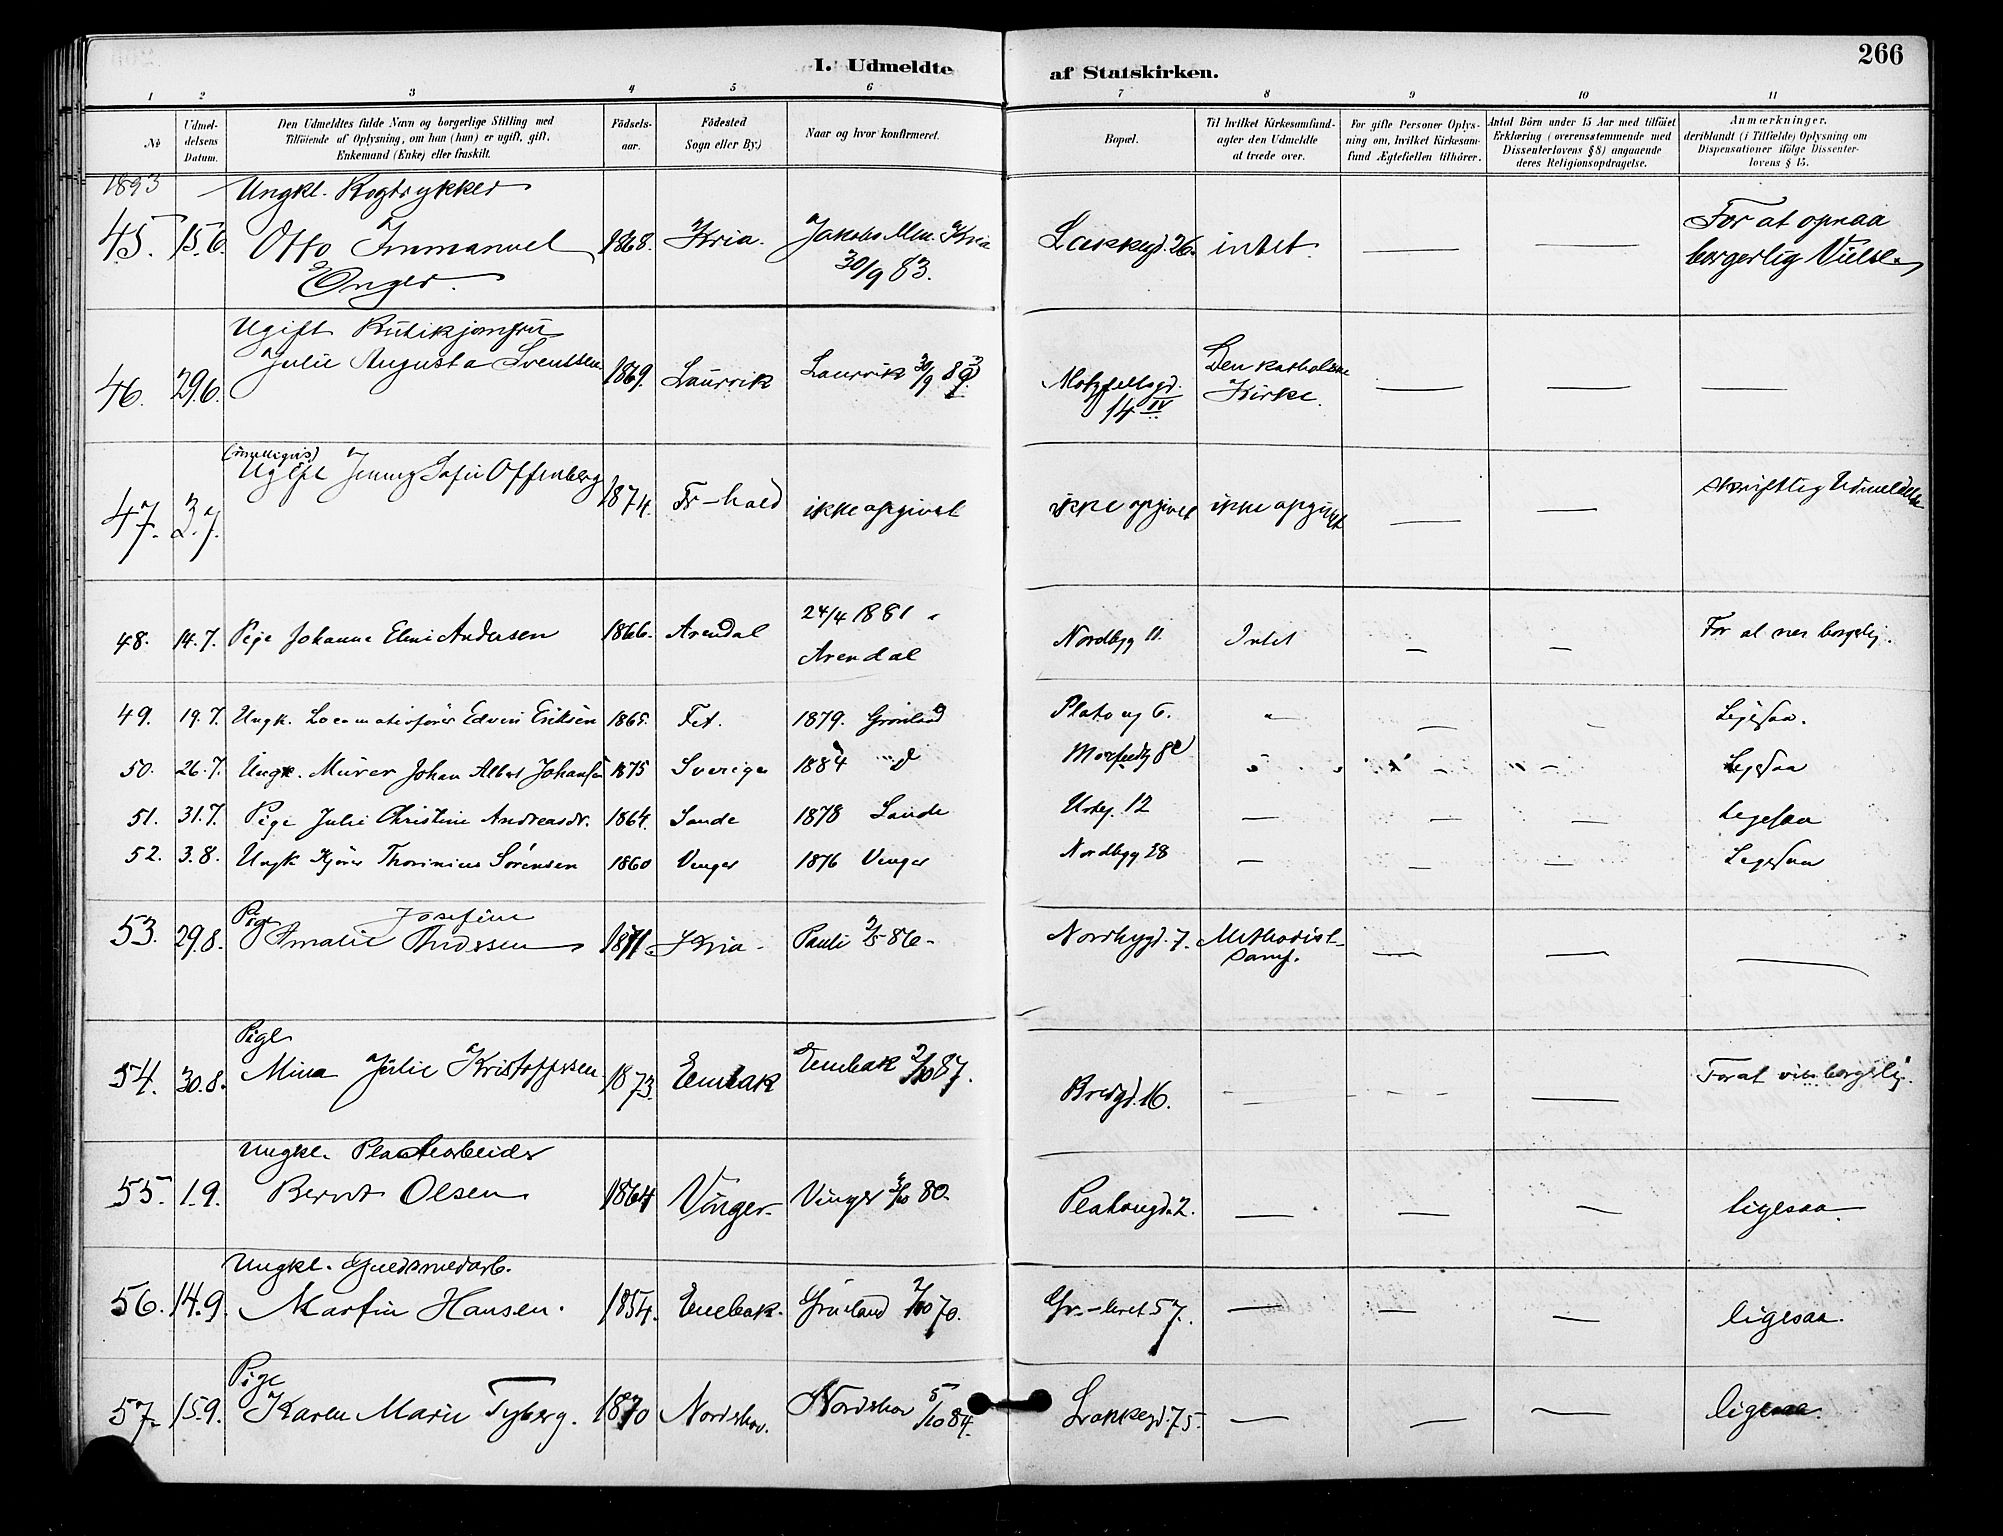 266
I. Udmeldte af Statskirken.
1 2 3 4 5 6 7 8 9 10 11
No
Udmeldelsens Datum.
Den Udmeldtes fulde Navn og borgerlige Stilling med
Tilföiende af Oplysning, om han (hun) er ugift, gift,
Enkemand (Enke) eller fraskilt.
Födsels-
aar.
Födested
Sogn eller By.)
Naar og hvor konfirmeret.
Bopæl.
Til hvilket Kirkesamfund-
agter den Udmeldte
at træde over.
For gifte Personer Oplys-
ning om, hvilket Kirkesam-
fund Ægtefællen tilhörer.
Antal Börn under 15 Aar med tilföiet
Erklæring (overensstemmende med
Dissenterlovens § 8) angaaende
deres Religionsopdragelse.
Anmærkninger,
deriblandt (i Tilfælde) Oplysning om
Dispensationer ifölge Dissenter-
lovens § 15.
1893
Ungkl. Bogtrykker
45. 15.6. Otto Immanuel 1868. Kria. Jakobs Mn. Kria Lakkegd. 26. intet. — — For at opnaa
Enger. 30/9 83. borgerlig Vielse.
Ugift Butikjomfru
46. 29.6. Julie Augusta Svendsen 1869. Laurvik Laurvik 30/9 83 Motzfeldsgd. 14 IV Den katholske Kirke. — — —
47. 3.7. Ugift Jenny Sofie Offenberg 1874. Fr-hald ikke opgivet ikke opgivet ikke opgivet — — skriftlig Udmeldelse
48. 14.7. Pige Johanne Eline Andersen 1866. Arendal 24/4 1881 Arendal Nordbyg 11. Intet — — For at vies borgelig.
49. 19.7. Ungk. Locomotivfører Edvin Eriksen 1865. Fet. 1879. Grønland Platoug 6. " — — Ligesaa.
50. 26.7. Ungk. Murer Johan Albert Johansen 1875 Sverige 1884 Ligesaa
51. 31.7. Pige Julie Christine Andreasdr. 1864. Sande 1878 Sande Urteg. 12 — — — Ligesaa
52. 3.8. Ungk Kjører Thorinius Sørensen 1860 Vinger 1876 Vinger Nordbyg 28 — — — Ligesaa
53. 29.8. Pige Amalie Josefine Andersen 1871. Kria. Pauli 2/5 86. Nordbygd. 7. Methodist-samf. — — —
Pige
54. 30.8. Mina Julie Kristoffersen 1873. Enebak Enebak 2/10 87. Bredgd. 16. — — — For at vies borgelig.
Ungkl. Pladsarbeider
55. 1.9. Bernt Olsen 1864 Vinger Vinger 3/10 80. Platougd. 2. — — — ligesaa
Ungkl. Guldsmedarb.
56. 14.9. Martin Hansen. 1854. Enebak. Grønland 2/10 70. Gr.-leret 57. — — — ligesaa.
Pige
57. 15.9. Karen Marie Tyberg. 1870 Nordskov. Nordskov 5/10 84. Lakkegd. 75. — — — ligesaa.